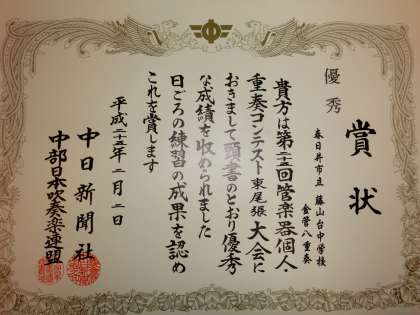 賞状
優秀
春日井市立 藤山台中学校
金管八重奏
貴方は第二十五回管楽器個人・
重奏コンテスト東尾張大会に
おきまして頭書のとおり優秀
な成績を収められました
日ごろの練習の成果を認め
これを賞します
平成二十五年二月二日
中日新聞社
中部日本吹奏楽連盟